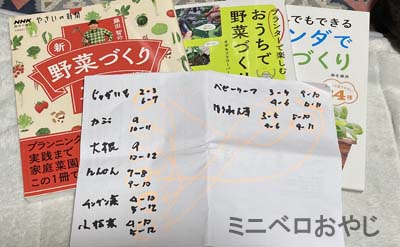 NHK
やさいの時間
藤田 智の
新
野菜づくり
プランニング
実践まで
家庭菜園
この1冊で
プランターで楽しむ
おうちで
野菜づくり
でもできる
ンダで
づくり
じゃがいも 2-3
6-7
かぶ 9
10-11
大根 9
10-12
にんじん 7-8
9-10
チンゲン菜 4-10
5-12
小松菜 4-10
5-12
ベビーリーフ 3-4 9-10
4-6 10-11
ほうれん草 3-5 8-10
4-6 9-11
ミニベロおやじ